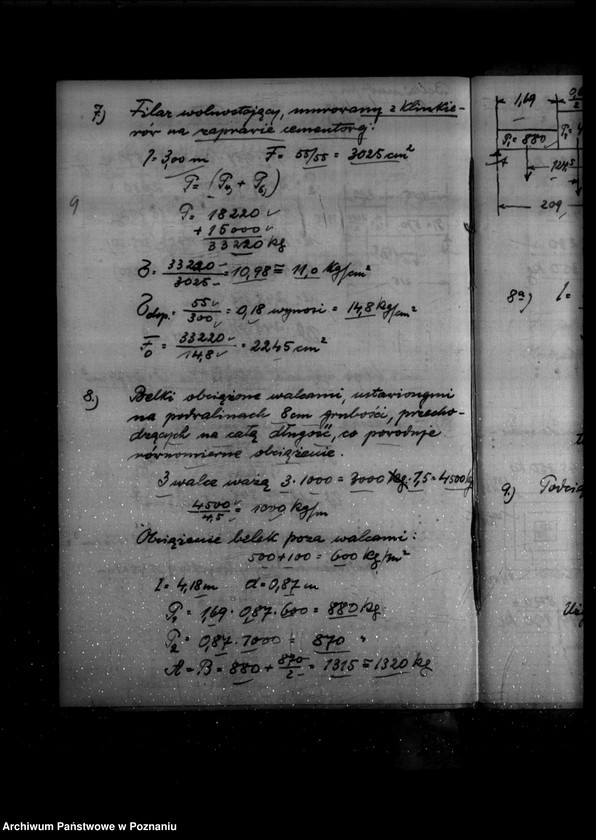 7) Filar wolnostojący, murowany z klinkie-
rów na zaprawie cementowej:
l = 3,00 m F = 55/55 = 3025 cm²
P = (P + P)
P = 18220
+ 15000
33220 kg
9
σ = 33220/3025 = 10,98 ≅ 11,0 kg/cm²
σ dop. = 55/300 = 0,18 wynosi = 14,8 kg/cm²
F₀ = 33220/14,8 = 2245 cm²
8.) Belki obciążone walcami, ustawionymi
na podvalinach 8 cm grubości, przecho-
dzących na całą długość, co powoduje
równomierne obciążenie.
3 walce ważą 3·1000 = 3000 kg · 1,5 = 4500 kg
4500/4,5 = 1000 kg/m
Obciążenie belek poza walcami:
500 + 100 = 600 kg/m²
l = 4,18 m d = 0,87 m
P₁ = 1,69 · 0,87 · 600 = 880 kg
P₂ = 0,87 · 1000 = 870 "
A = B = 880 + 870/2 = 1315 ≅ 1320 kg
1,69
P₁ = 880
209
8a) l =
9.)
Archiwum Państwowe w Poznaniu